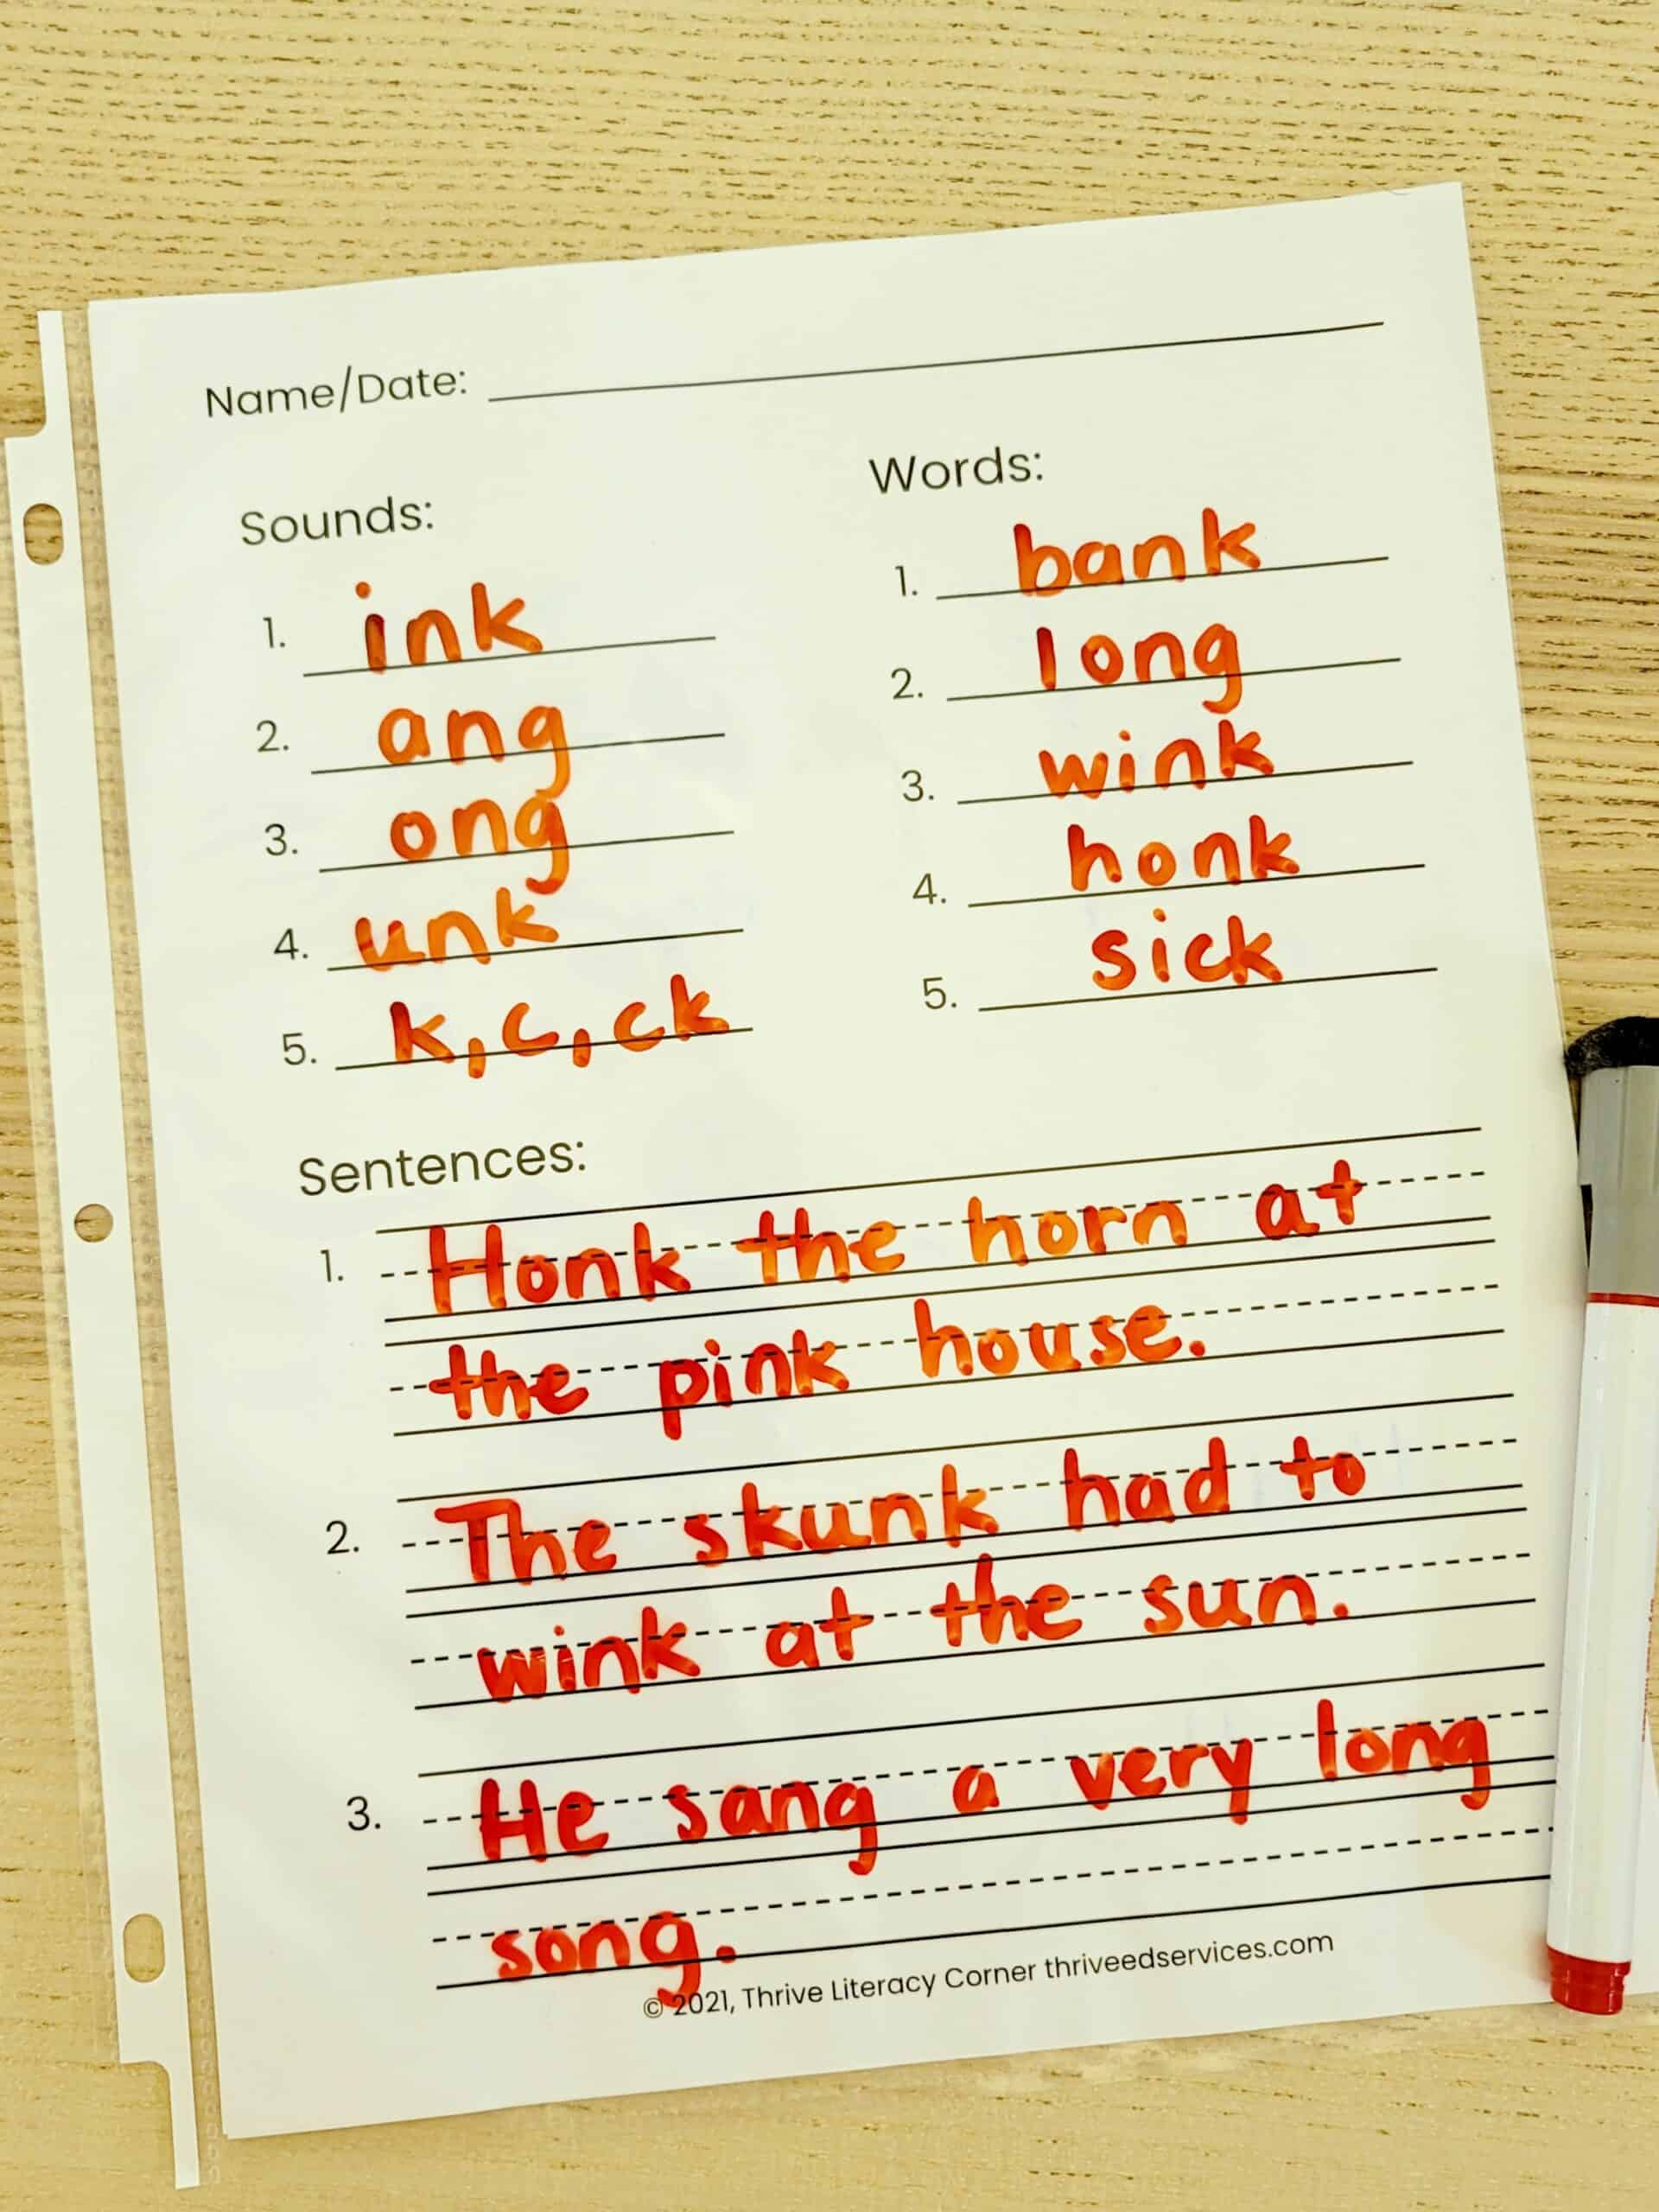 Name/Date:
Sounds:
1. ink
2. ang
3. ong
4. unk
5. k, c, ck
Words:
1. bank
2. long
3. wink
4. honk
5. sick
Sentences:
1. Honk the horn at
the pink house.
2. The skunk had to
wink at the sun.
3. He sang a very long
song.
© 2021, Thrive Literacy Corner thriveedservices.com